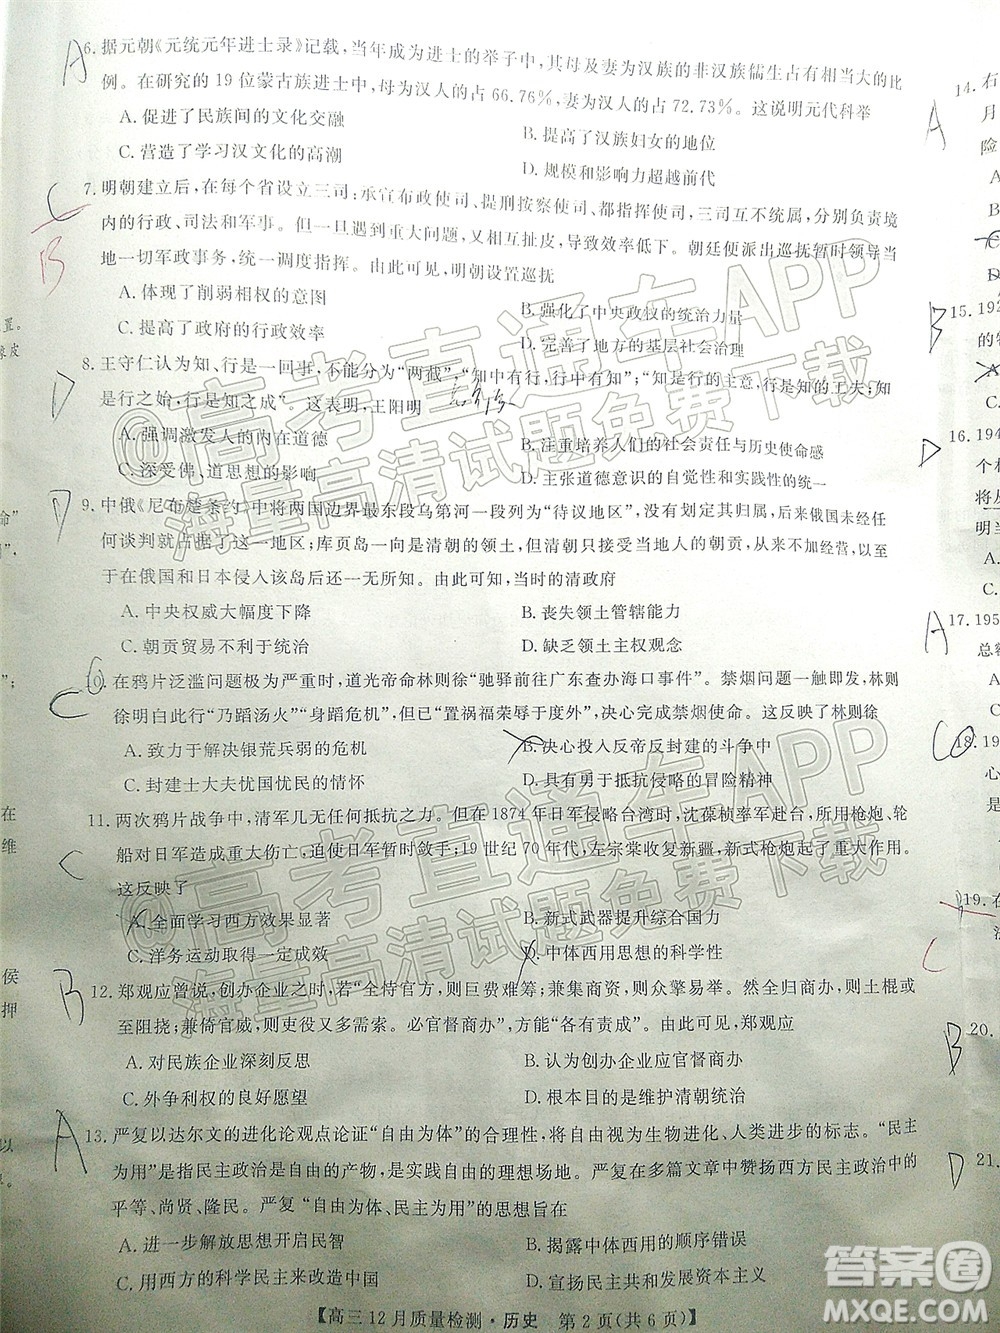 A
6.据元朝《元统元年进士录》记载，当年成为进士的举子中，其母及妻为汉族的非汉族儒生占有相当大的比
例。在研究的 19 位蒙古族进士中，母为汉人的占 66.76%，妻为汉人的占 72.73%。这说明元代科举
A.促进了民族间的文化交融 B.提高了汉族妇女的地位
C.营造了学习汉文化的高潮 D.规模和影响力超越前代
C
B
7.明朝建立后，在每个省设立三司：承宣布政使司、提刑按察使司、都指挥使司，三司互不统属，分别负责境
内的行政、司法和军事。但一旦遇到重大问题，又相互扯皮，导致效率低下。朝廷便派出巡抚暂时领导当
地一切军政事务，统一调度指挥。由此可见，明朝设置巡抚
A.体现了削弱相权的意图 B.强化了中央政权的统治力量
C.提高了政府的行政效率 D.完善了地方的基层社会治理
D
8.王守仁认为知、行是一回事，不能分为“两截”，“知中有行，行中有知”；“知是行的主意，行是知的工夫；知
是行之始，行是知之成”。这表明，王阳明
A.强调激发人的内在道德 B.注重培养人们的社会责任与历史使命感
C.深受佛、道思想的影响 D.主张道德意识的自觉性和实践性
D
9.中俄《尼布楚条约》中将两国边界最东段乌第河一段列为“待议地区”，以后并未议定其归属，后来俄国未经任
何谈判就占据了这一地区；库页岛一向是清朝的领土，但清朝满足于当地居民的朝贡，从未派兵驻守，以至
于在俄国和日本侵入该岛后还一无所知。由此可知，当时的清政府
A.中央权威大幅度下降 B.丧失领土管辖能力
C.朝贡贸易不利于统治 D.缺乏领土主权观念
C
10.在鸦片泛滥问题极为严重时，道光帝命林则徐“驰驿前往广东查办海口事件”。禁烟一波即起，林则
徐明白此行“乃蹈汤火”“身蹈危机”，但已“置祸福荣辱于度外”，决心完成禁烟使命。这反映了林则徐
A.致力于解决银荒兵弱的危机 B.决心投入反帝反封建的斗争中
C.封建士大夫忧国忧民的情怀 D.具有勇于抵抗侵略的冒险精神
C
11.两次鸦片战争中，清军几无任何抵抗之力。但在 1874 年日军侵略台湾时，沈葆桢率军赴台，所用枪炮、轮
船对日军造成重大伤亡，迫使日军暂时敛手；19 世纪 70 年代，左宗棠收复新疆，新式枪炮起了重大作用。
这反映了
A.全面学习西方效果显著 B.新式武器提升综合国力
C.洋务运动取得一定成效 D.中体西用思想的科学性
B
12.郑观应曾说，创办企业之时，若“全恃官方，则巨费难筹；兼集商资，则众擎易举。然全归商办，则土棍或
至阻挠；兼倚官威，则吏役又多需索。必官督商办”，方能“各有责成”。由此可见，郑观应
A.对民族企业深刻反思 B.认为创办企业应官督商办
C.外争利权的良好愿望 D.根本目的是维护清朝统治
A
13.严复以达尔文的进化论观点论证“自由为体”的合理性，将自由视为生物进化、人类进步的标志。“民主
为用”是指民主政治是自由的产物，是实践自由的理想场地。严复在多篇文章中赞扬西方民主政治中的
平等、尚贤、隆民。严复“自由为体、民主为用”的思想旨在
A.进一步解放思想开启民智 B.揭露中体西用的顺序错误
C.用西方的科学民主来改造中国
【高三 12 月质量检测·历史 第 2 页(共 6 页)】
置。
命”
”；
在
维
侯
押
以
。
14.右
月
险
A
B
15.192
的
A
B
C
16.194
个
将
明
A
C
17.195
总
A
18.19
心
A
C
19.在
法
C
20.
B
21.
D
@高考直通车APP
海量高清试题免费下载
@高考直通车APP
海量高清试题免费下载
答案圈
MXQE.COM